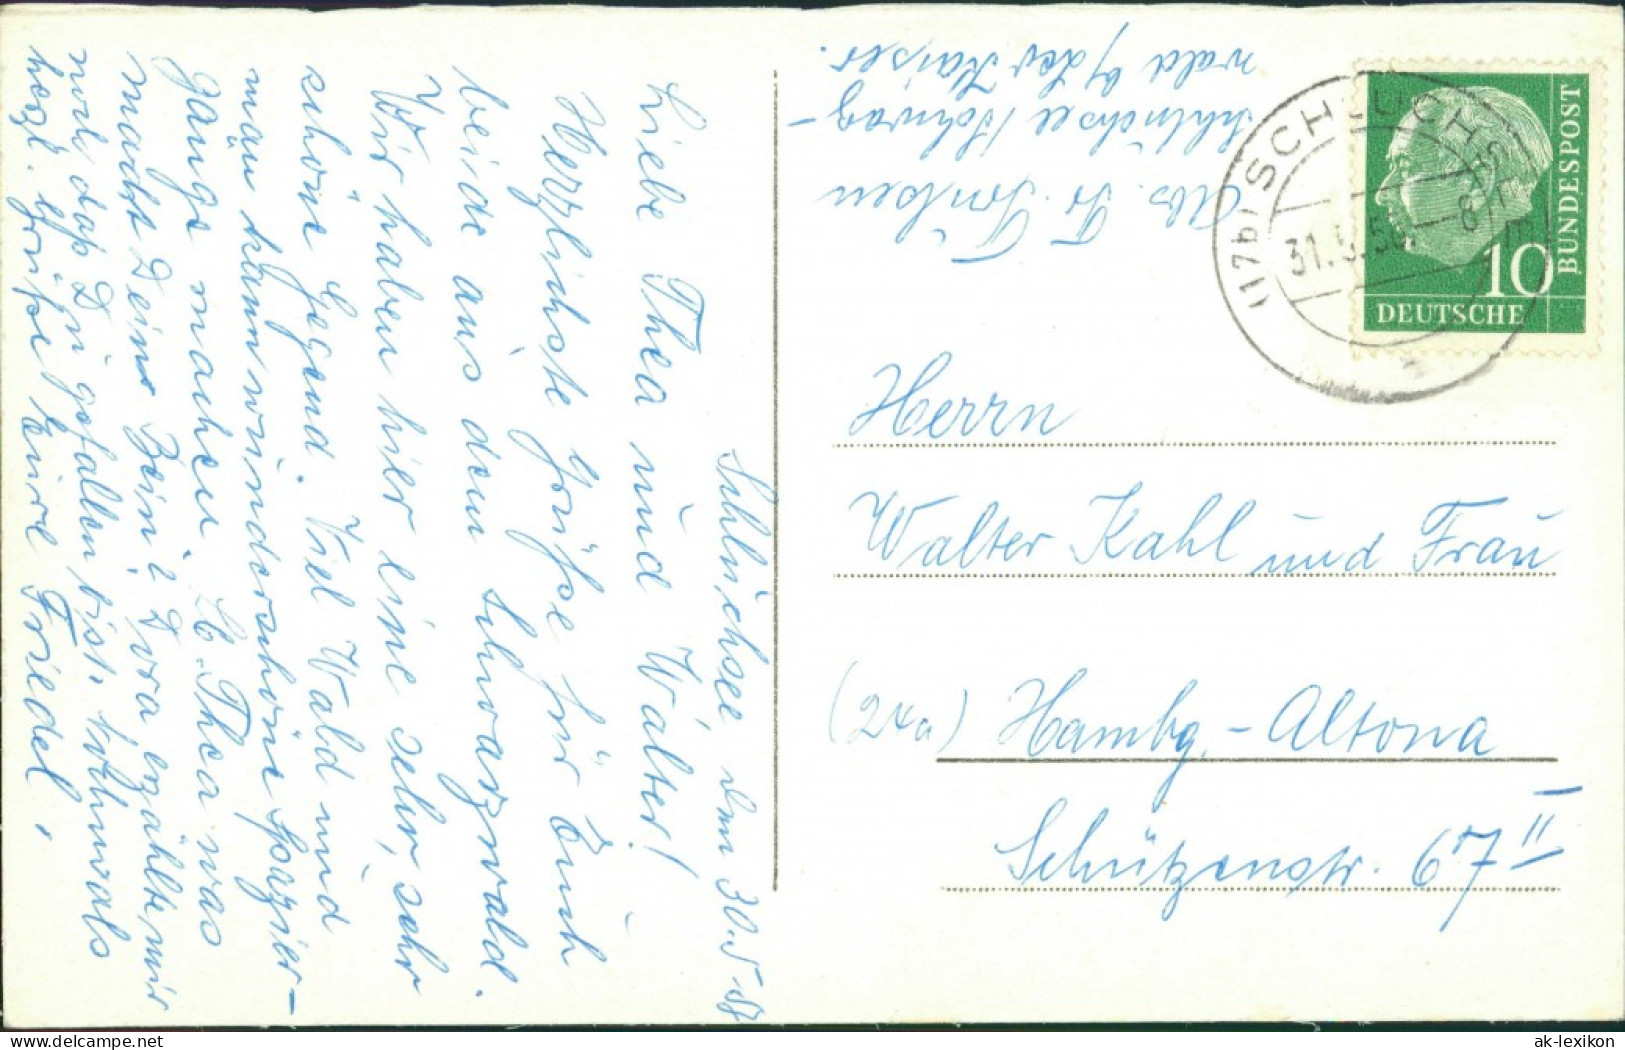 Schluchsee den 30.5.58
Liebe Thea und Walter!
Herzlichste Grüße für Euch
beide aus dem Schwarzwald.
Wir haben hier eine sehr, sehr
schöne Gegend. Viel Wald und
man kann wunderschöne Spazier-
gänge machen. Lb. Thea was
macht Dein Bein? Dora erzählte mir
noch daß Du gefallen bist. Nochmals
herzl. Grüße Eure Friedel.
Abs. Fr. Tönßen
Schluchsee / Schwarz-
wald b/
Kaiser.
(17b) SCHLUCHSEE
31.5.58. 8
BUNDESPOST
10
DEUTSCHE
Herrn
Walter Kahl und Frau
(24a) Hambg.-Altona
Schützenstr. 67 II
ak-lexikon